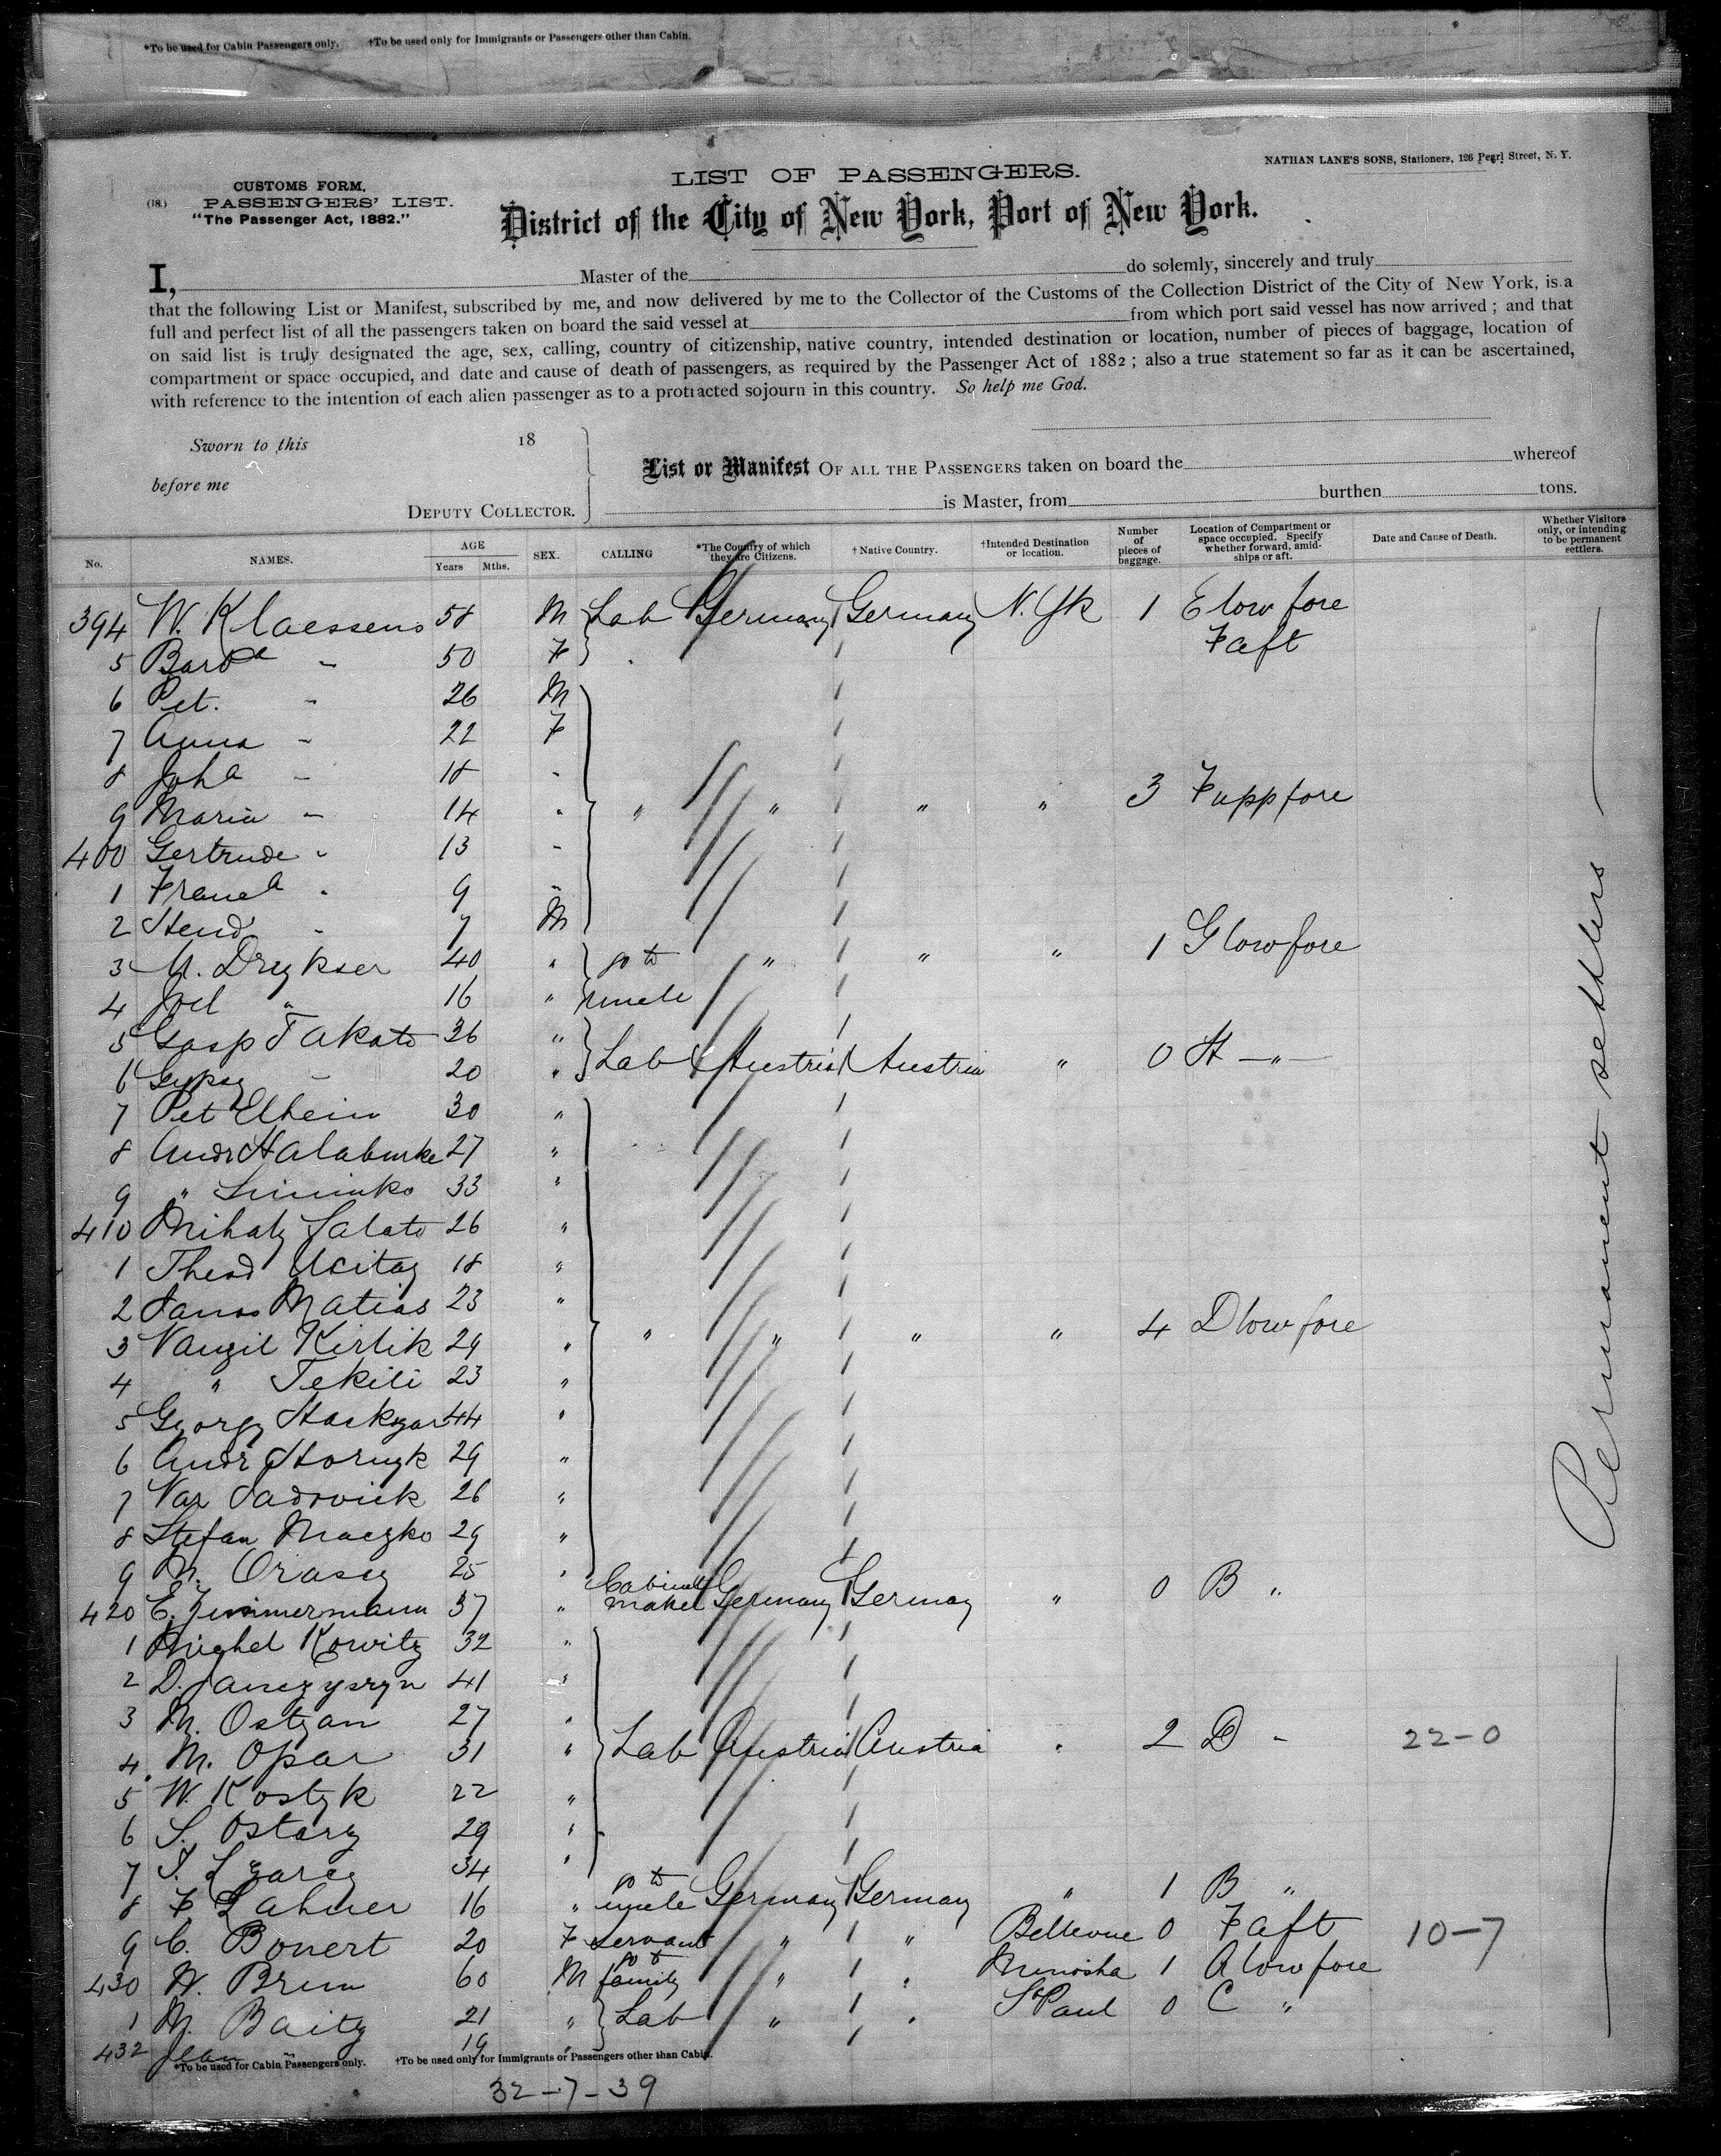 *To be used for Cabin Passengers only. †To be used only for Immigrants or Passengers other than Cabin.
NATHAN LANE'S SONS, Stationers, 126 Pearl Street, N. Y.
LIST OF PASSENGERS.
CUSTOMS FORM,
(18.) PASSENGERS' LIST.
"The Passenger Act, 1882."
District of the City of New York, Port of New York.
I, Master of the do solemly, sincerely and truly
that the following List or Manifest, subscribed by me, and now delivered by me to the Collector of the Customs of the Collection District of the City of New York, is a
full and perfect list of all the passengers taken on board the said vessel at from which port said vessel has now arrived; and that
on said list is truly designated the age, sex, calling, country of citizenship, native country, intended destination or location, number of pieces of baggage, location of
compartment or space occupied, and date and cause of death of passengers, as required by the Passenger Act of 1882; also a true statement so far as it can be ascertained,
with reference to the intention of each alien passenger as to a protracted sojourn in this country. So help me God.
Sworn to this 18
before me
DEPUTY COLLECTOR.
List or Manifest OF ALL THE PASSENGERS taken on board the whereof
is Master, from burthen tons.
No. NAMES. AGE Years Mths. SEX. CALLING *The Country of which they are Citizens. †Native Country. †Intended Destination or location. Number of pieces of baggage. Location of Compartment or space occupied. Specify whether forward, amidships or aft. Date and Cause of Death. Whether Visitors only, or intending to be permanent settlers.
394 W. Klaessens 58 M Lab Germany Germany N. Yk 1 E low fore
5 Barba " 50 F F aft
6 Pet. " 26 M
7 Anna " 22 F
8 Joha " 18 "
9 Maria " 14 " " " " " 3 F upp fore
400 Gertrude " 13 "
1 Franca " 9 "
2 Hend " 7 M
3 M. Drykser 40 " go to " " " 1 G low fore
4 Joel " 16 " uncle
5 Gasp Takato 36 "
6 " 20 " Lab Austria Austria " 0 H — " —
7 Pet Elhein 30 "
8 Andr Halaburke 27 "
9 " Siminko 33 "
410 Mihaly Salato 26 "
1 Theod 18 "
2 Janos Matias 23 "
3 Vaugil Kirlik 29 " " " " " 4 D low fore
4 " Tekili 23 "
5 Georgy 44 "
6 Andr Hornyk 29 "
7 Var Sadovick 26 "
8 Stefan Maczko 29 "
9 M. Orasey 25 "
420 E. Zimmermann 37 " Cabinet maker Germany Germany " 0 B "
1 Michel Korvitz 32 "
2 D. 41 "
3 M. Ostzan 27 "
4 M. Opar 31 " Lab Austria Austria " 2 D " 22-0
5 W. Kostyk 22 "
6 S. Ostary 29 "
7 34 "
8 F Lahner 16 " go to uncle Germany Germany " 1 B "
9 C. Bonert 20 F servant " " Bellevue 0 F aft 10-7
430 N. Brem 60 M go to family " " Menosha 1 A low fore
1 M. Baity 21 " Lab " " St Paul 0 C "
432 Jean " 19 "
Permanent settlers
*To be used for Cabin Passengers only. †To be used only for Immigrants or Passengers other than Cabin.
32-7-39